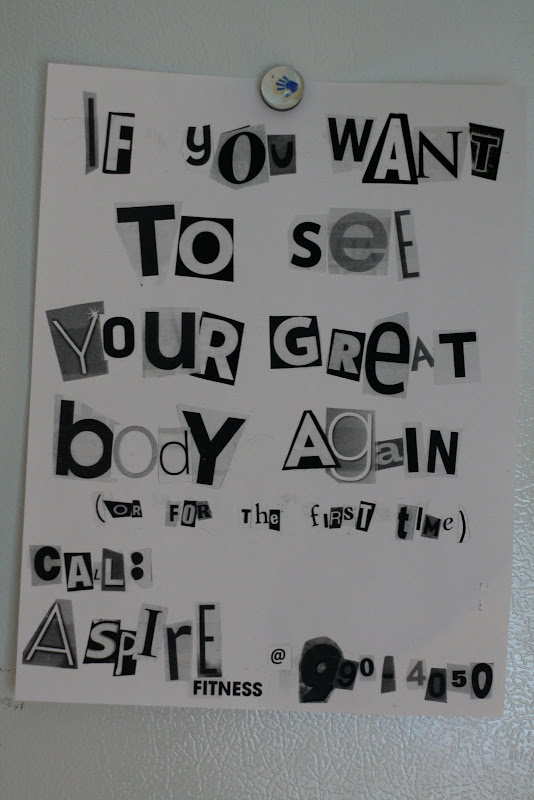 IF yOU WANT
TO SEE
YOUR GReAT
bodY AgaIN
(OR FOR The fIRST tIME)
CALL:
ASPIrE
FITNESS @ 990-4050